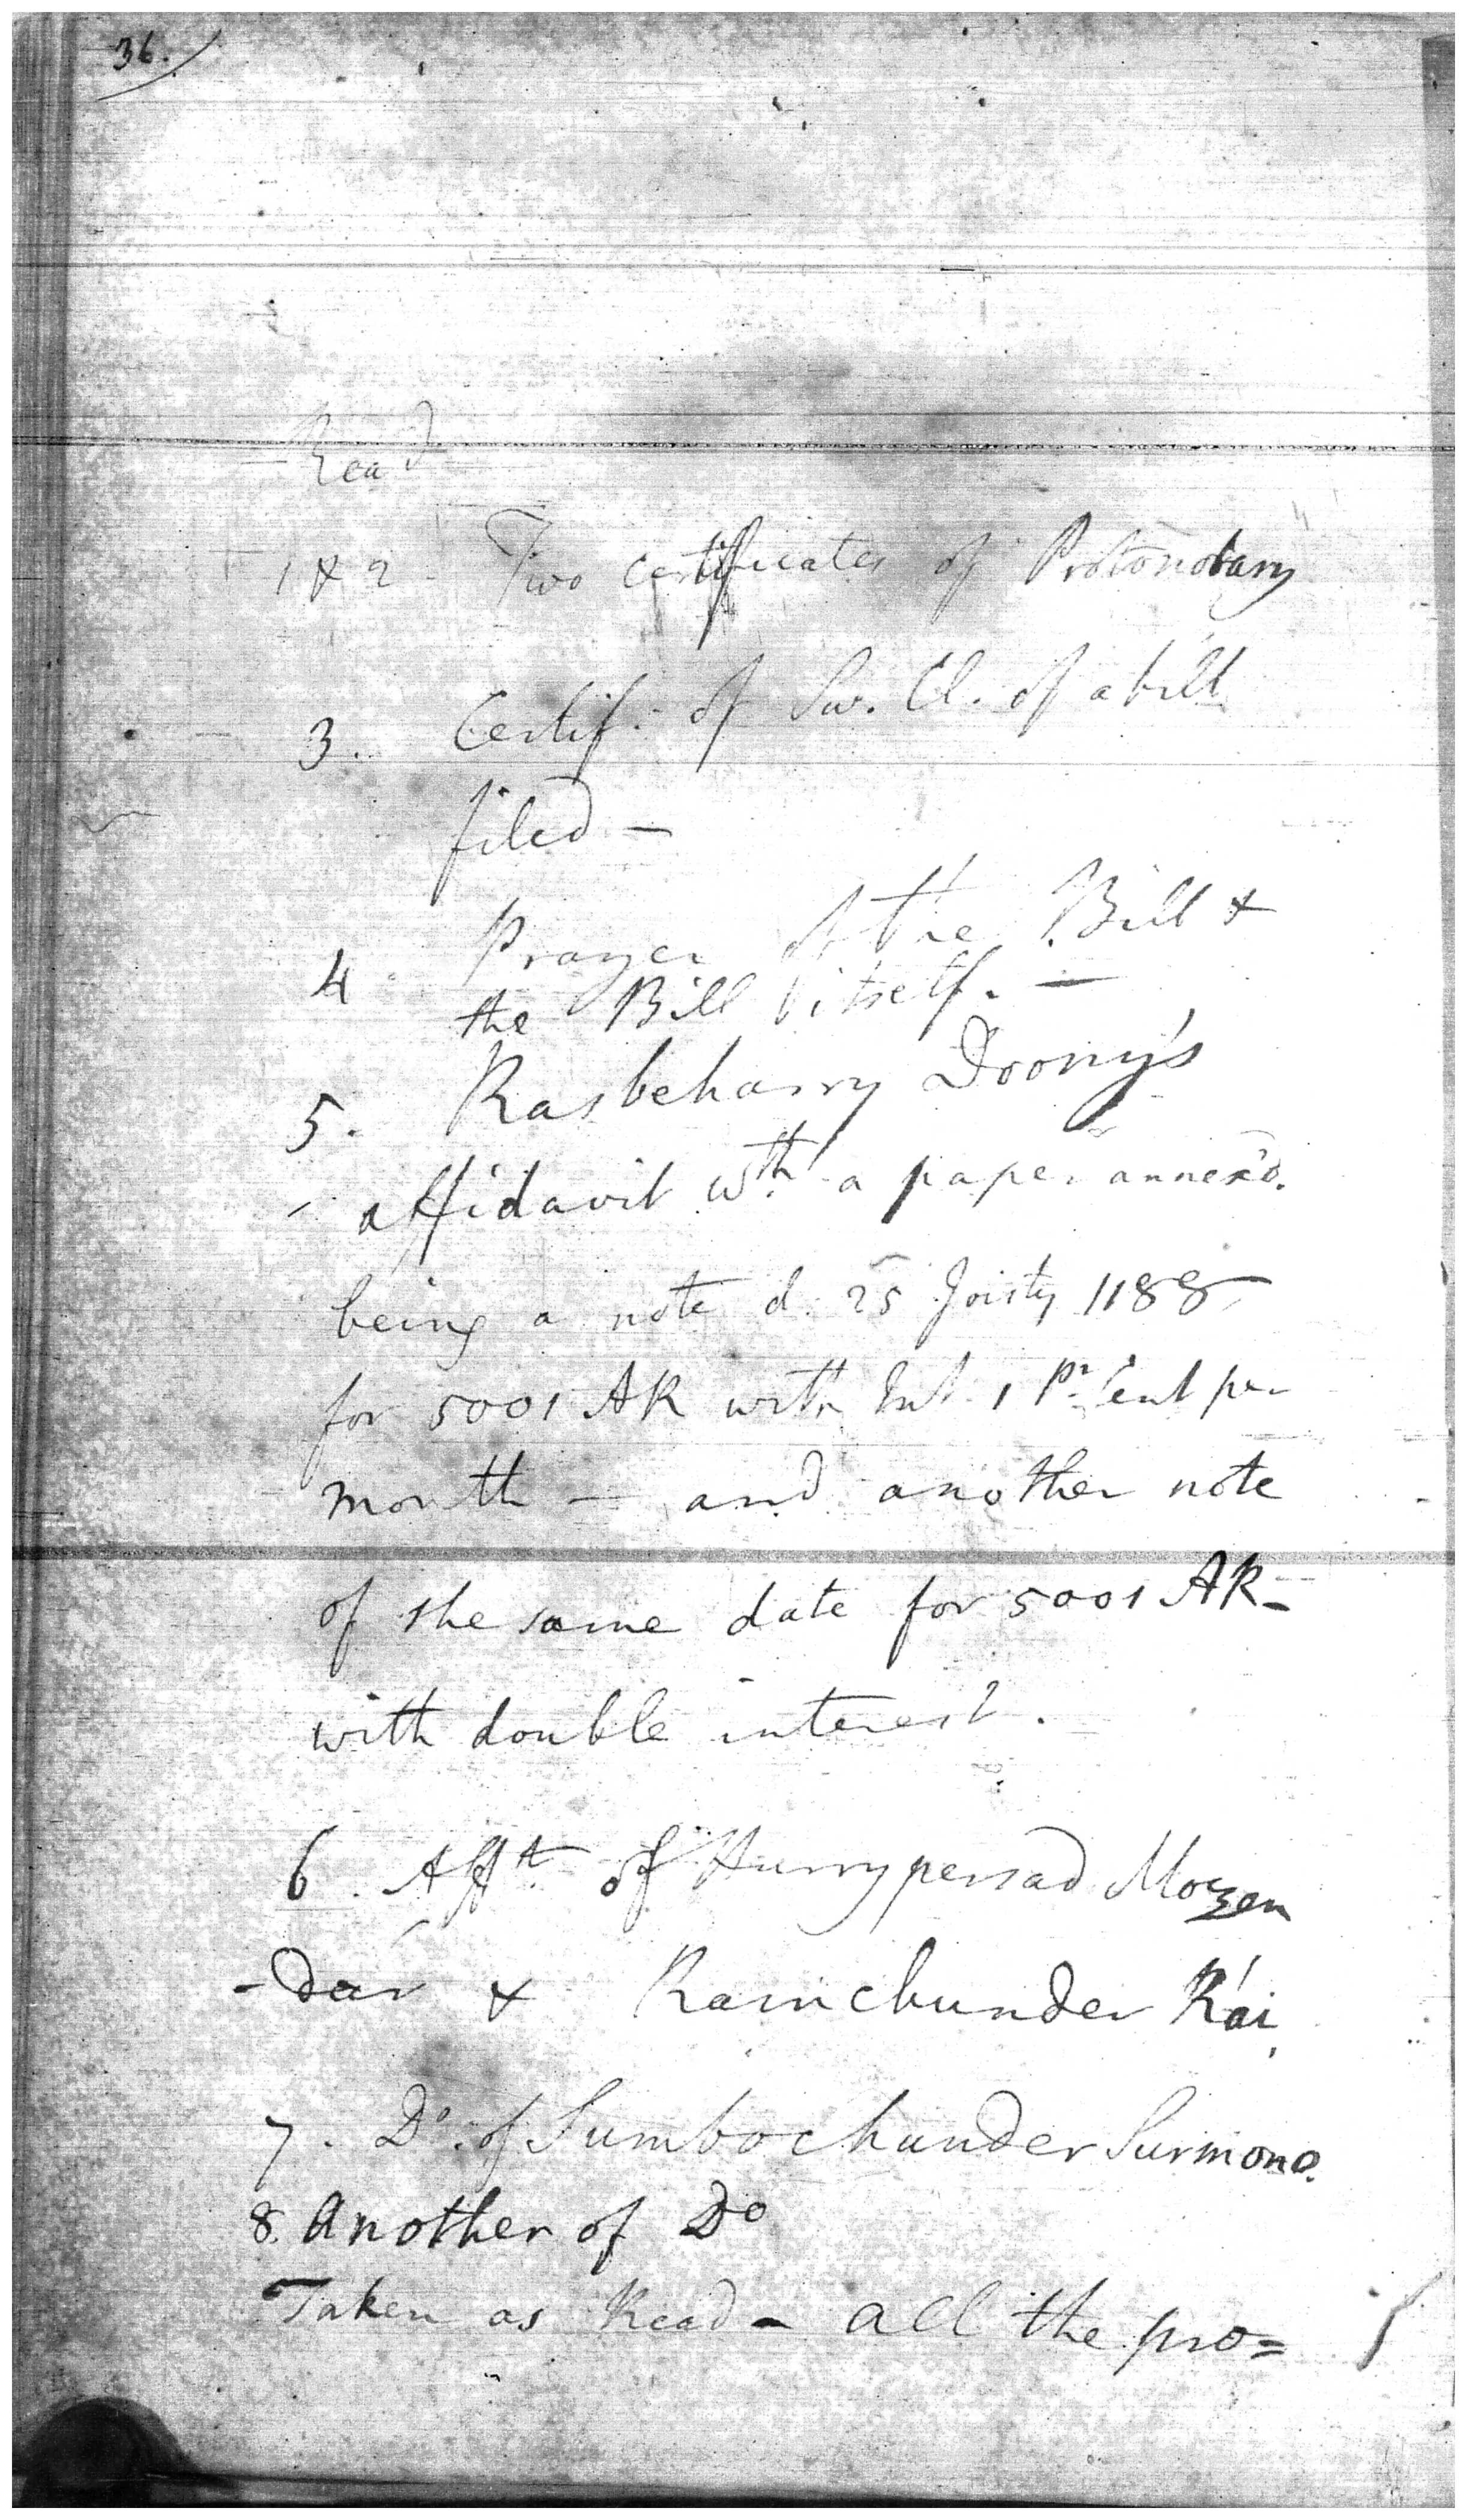 36.
Read
1 & 2 Two certificates of Protonotary
3. Certif. of Sw. Cl. of a bill
filed —
4 Prayer of the Bill &
the Bill itself. —
5. Rasbeharry Doony's
affidavit wth a paper annex'd.
being a note d. 25 Joisty 1188
for 5001 AR with Int. 1 Pr Cent per
month — and another note
of the same date for 5001 AR —
with double interest.
6. Afft. of Hurrypersad Mozem
-dar & Ramchunder Rai
7. Do. of Sumbochunder Surmono.
8. Another of Do
Taken as Read — all the pro=